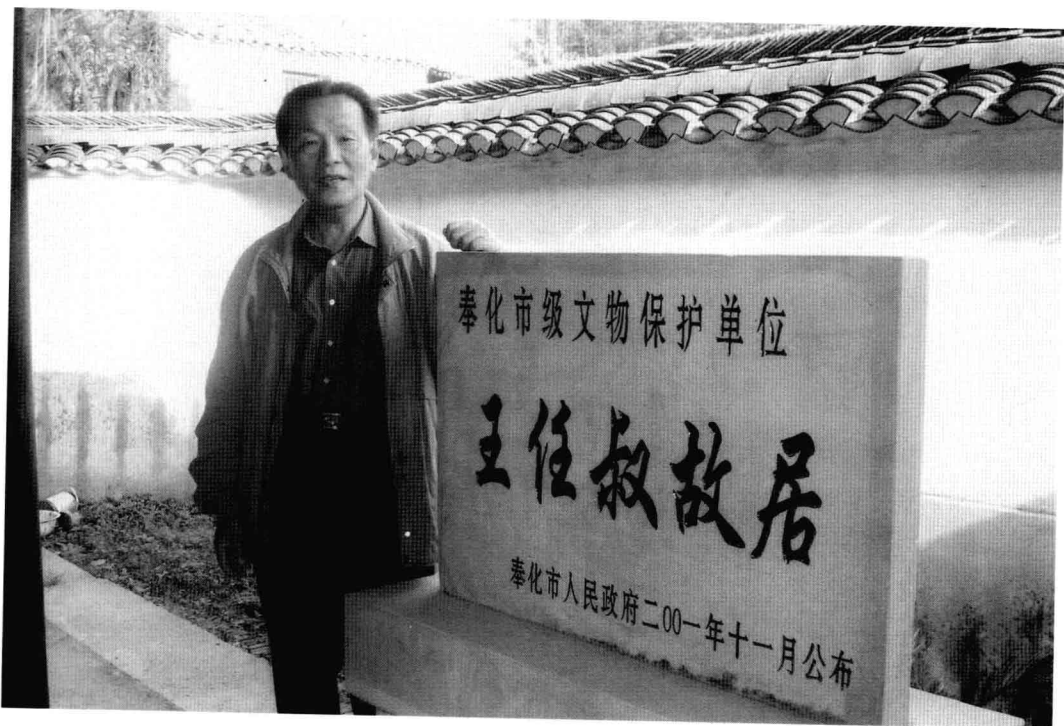 奉化市级文物保护单位
王任叔故居
奉化市人民政府二00一年十一月公布